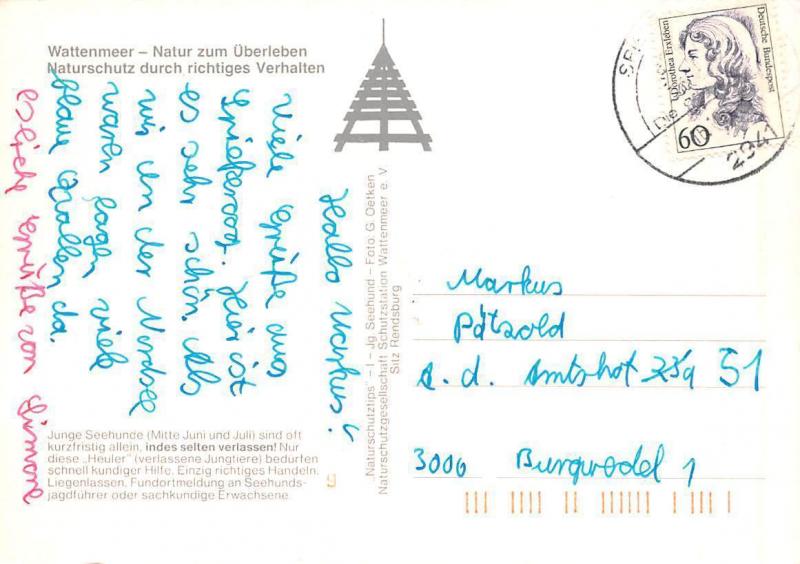 Wattenmeer – Natur zum Überleben
Naturschutz durch richtiges Verhalten
Hallo Markus!
Viele Grüße aus
Spiekeroog. Hier ist
es sehr schön. Als
wir in der Nordsee
waren lagen viele
blaue Quallen da.
Grüße von Simone
Junge Seehunde (Mitte Juni und Juli) sind oft
kurzfristig allein, indes selten verlassen! Nur
diese „Heuler" (verlassene Jungtiere) bedürfen
schnell kundiger Hilfe. Einzig richtiges Handeln.
Liegenlassen. Fundortmeldung an Seehunds-
jagdführer oder sachkundige Erwachsene.
9
„Naturschutztips" – I – Jg. Seehund – Foto: G. Oetken
Naturschutzgesellschaft Schutzstation Wattenmeer e. V
Sitz Rendsburg
Deutsche Bundespost
Dorothea Erxleben
60
2941
Markus
Pätzold
A. d. Amtshof 51
3006 Burgwedel 1